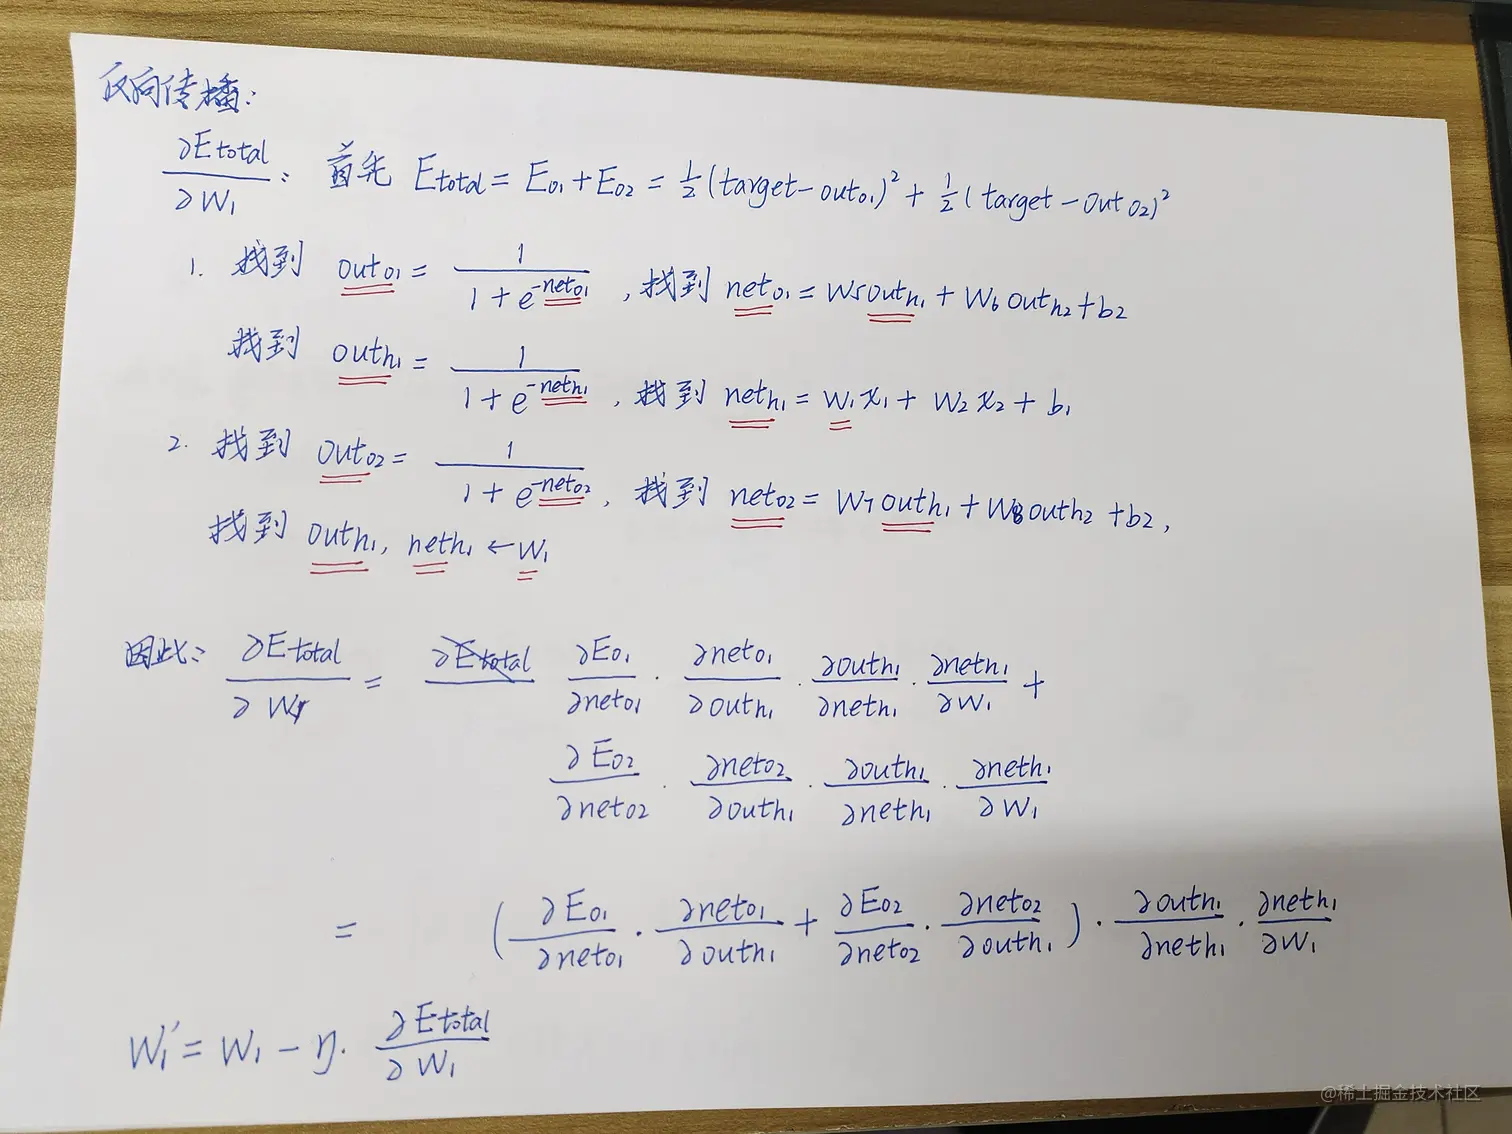 反向传播:
∂Etotal/∂W₁ : 首先 Etotal = E₀₁ + E₀₂ = ½(target - out₀₁)² + ½(target - out₀₂)²
1. 找到 out₀₁ = 1/(1 + e^(-net₀₁)) , 找到 net₀₁ = W₅outh₁ + W₆outh₂ + b₂
找到 outh₁ = 1/(1 + e^(-neth₁)) , 找到 neth₁ = W₁x₁ + W₂x₂ + b₁
2. 找到 out₀₂ = 1/(1 + e^(-net₀₂)) , 找到 net₀₂ = W₇outh₁ + W₈outh₂ + b₂ ,
找到 outh₁, neth₁ ← W₁
因此: ∂Etotal/∂W₁ = ∂E₀₁/∂net₀₁ · ∂net₀₁/∂outh₁ · ∂outh₁/∂neth₁ · ∂neth₁/∂W₁ +
∂E₀₂/∂net₀₂ · ∂net₀₂/∂outh₁ · ∂outh₁/∂neth₁ · ∂neth₁/∂W₁
= (∂E₀₁/∂net₀₁ · ∂net₀₁/∂outh₁ + ∂E₀₂/∂net₀₂ · ∂net₀₂/∂outh₁) · ∂outh₁/∂neth₁ · ∂neth₁/∂W₁
W₁' = W₁ - η · ∂Etotal/∂W₁
@稀土掘金技术社区